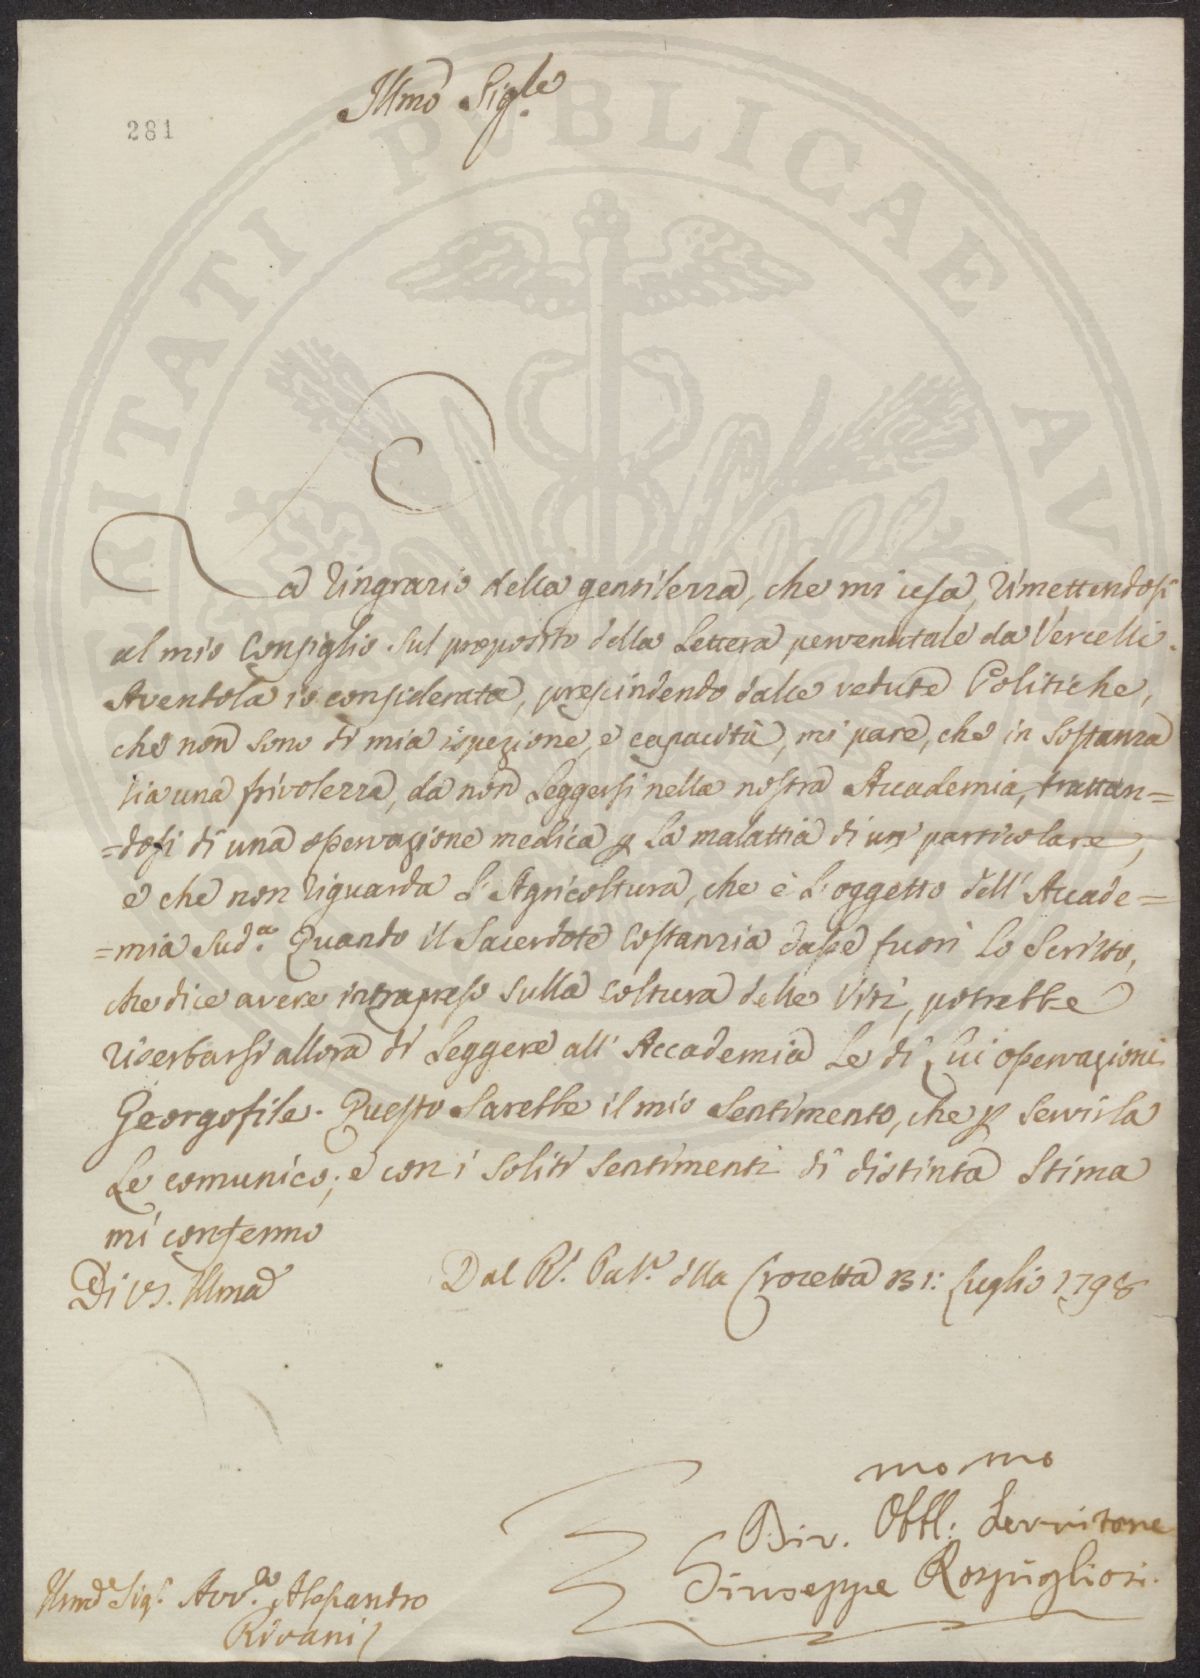 281
Illmo Sig.le
La ringrazio della gentilezza, che mi usa, rimettendosi
al mio Consiglio sul proposito della Lettera pervenutale da Vercelli.
Avendola io considerata, prescindendo dalle vedute Politiche,
che non sono di mia ispezione, e capacità, mi pare, che in sostanza
sia una frivolezza, da non leggersi nella nostra Accademia, trattan=
=dosi di una osservazione medica p la malattia di un particolare,
e che non riguarda l'Agricoltura, che è l'oggetto dell'Accade=
=mia sud.a Quando il Sacerdote Costanzia dasse fuori lo Scritto,
che dice avere intrapreso sulla coltura delle Viti, potrebbe
riserbarsi allora di leggere all'Accademia le di lui osservazioni
Georgofile. Questo sarebbe il mio sentimento, che p servirla
le comunico; e con i soliti sentimenti di distinta stima
mi confermo
Di VS. Illma
Dal R. Pal. dlla Crocetta 31: Luglio 1798
mo mo
Div. Obbl: Servitore
Giuseppe Rospigliosi.
Illmo Sig.r Avv.to Alessandro
Rivani
UTILITATI PUBLICAE AU